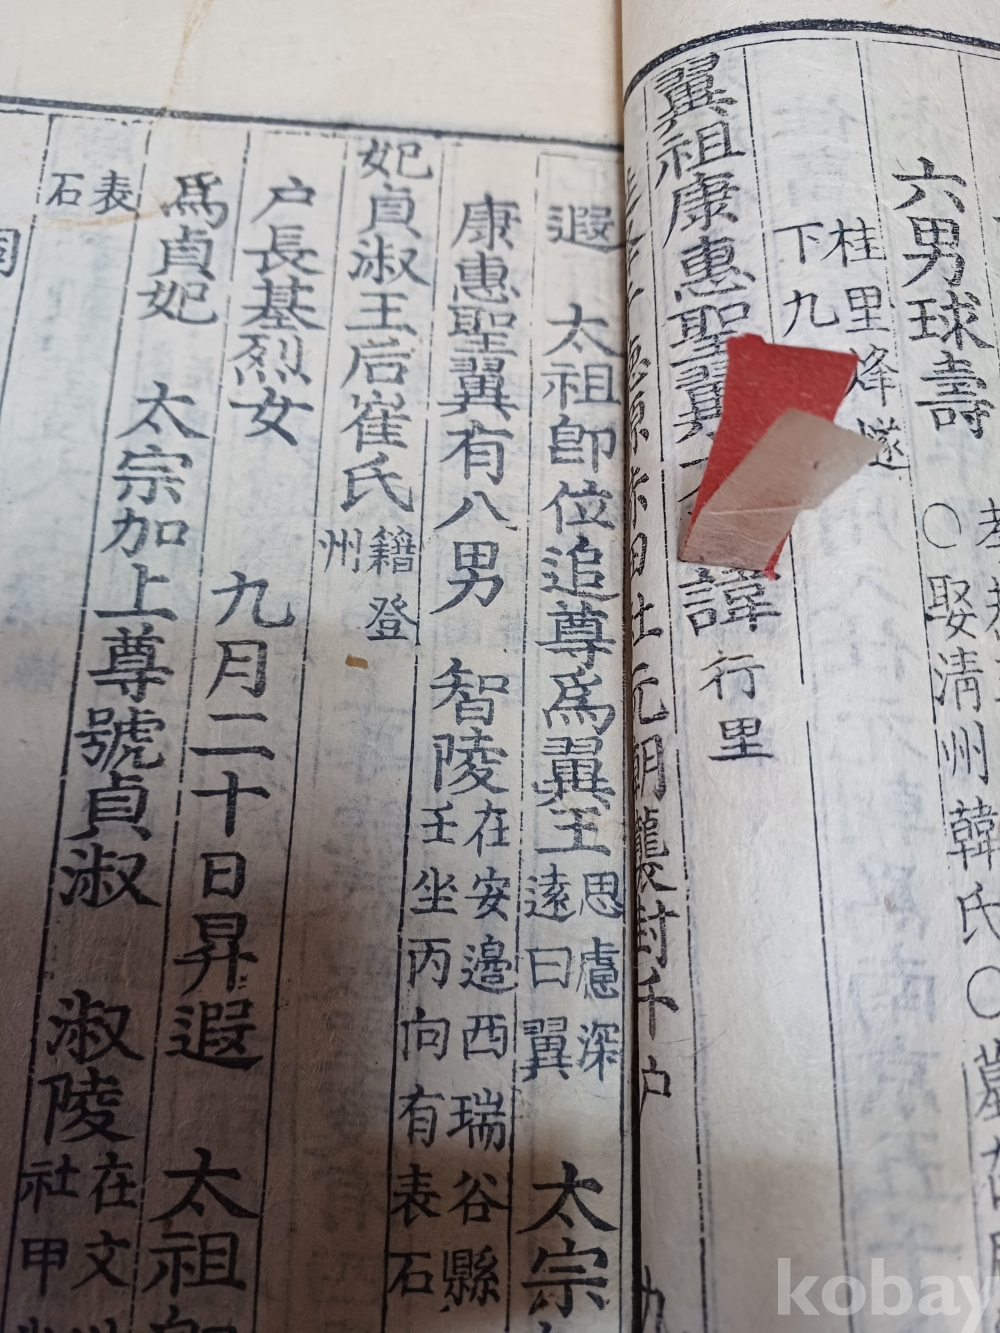 六男球壽
○娶淸州韓氏○墓
桂里烽燧
下九
翼祖康惠聖翼
諱行里
元朝襲封千戶
遐 太祖卽位追尊爲翼王思慮深遠曰翼 太宗
康惠聖翼有八男 智陵在安邊西瑞谷縣壬坐丙向有表石
妃貞淑王后崔氏籍登州
戶長基烈女 九月二十日昇遐 太祖
爲貞妃 太宗加上尊號貞淑 淑陵在文社甲
表石
kobay